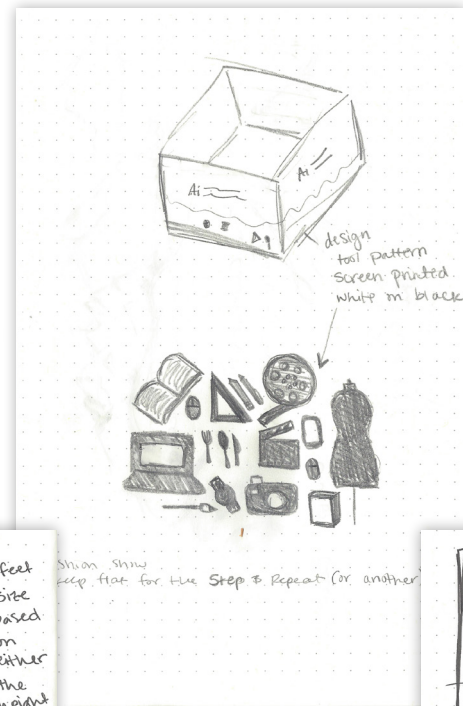 Ai
Ai
design
tool pattern
screen-printed
white on black
feet
size
based
on
either
the
show
flat for the Step & Repeat (or another